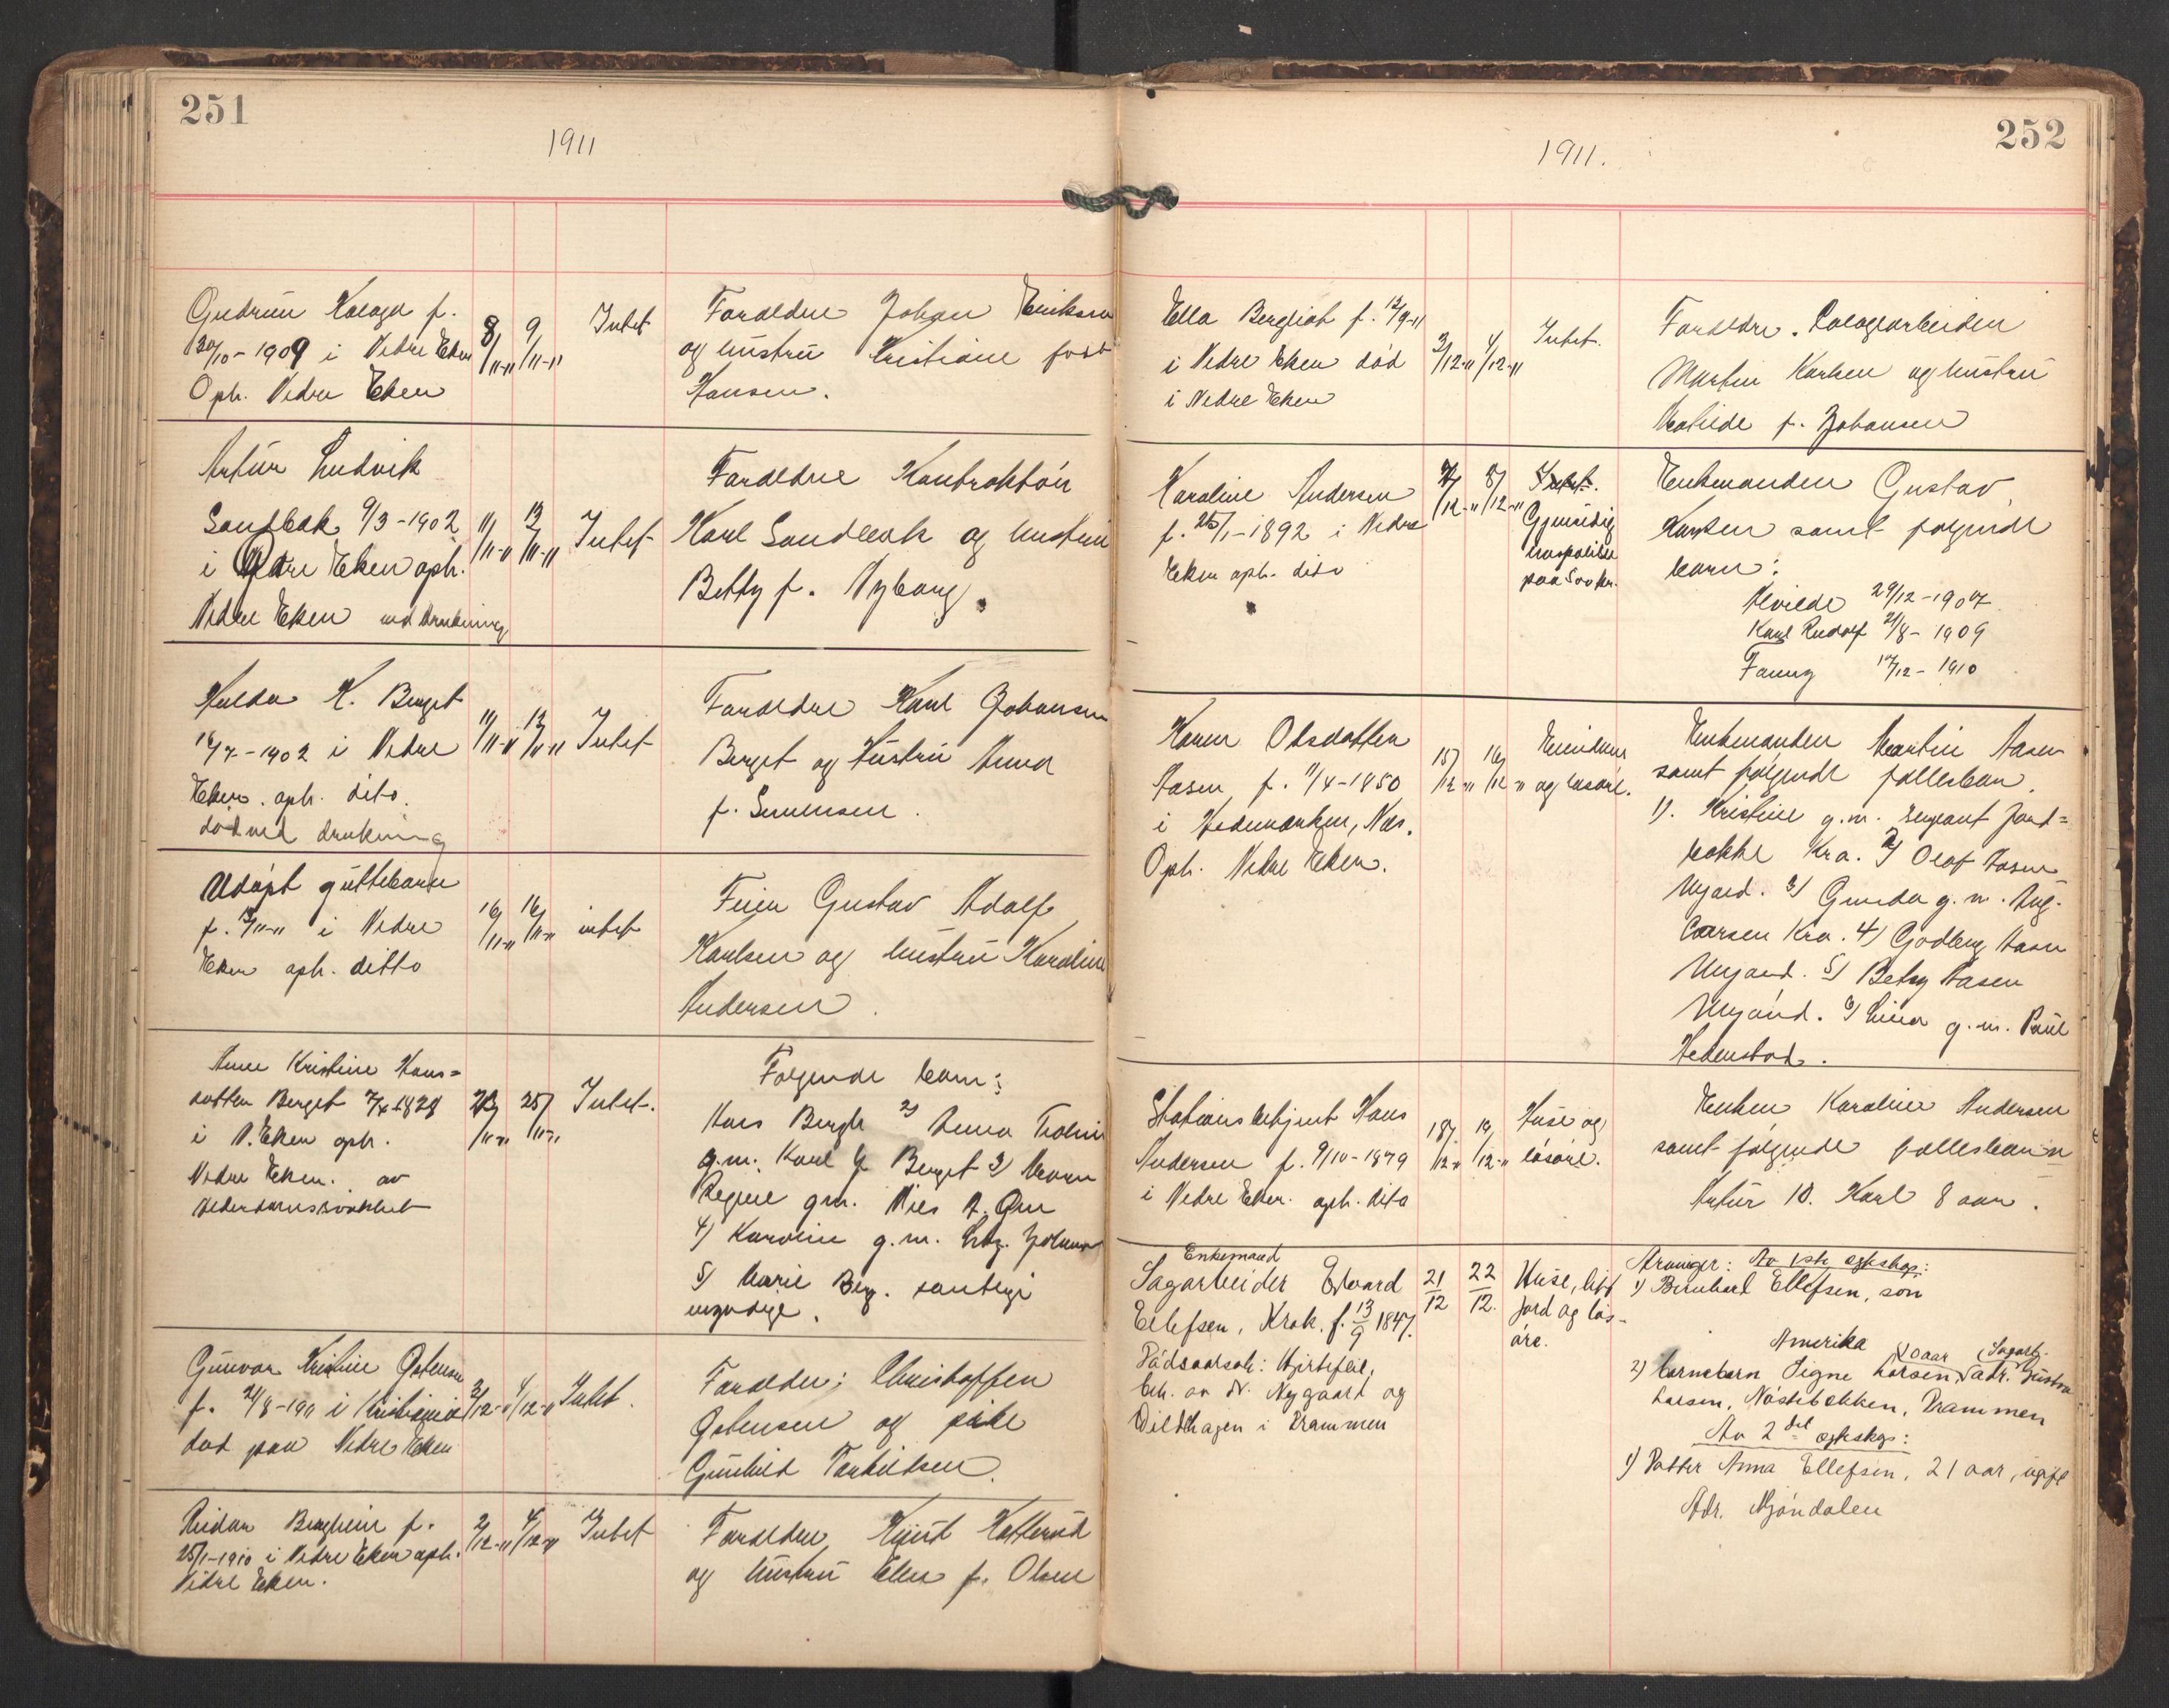 251
1911
Gudrun f.
30/10 - 1909 i Nedre Eker
Oph. Nedre Eker
8/11-11
9/11-11
Intet
Foræældre Johan Eriksen
og hustru Kristiane født
Hansen.
Artur Ludvik
Sandbak 9/3 - 1902
i Nedre Eker oph.
Nedre Eker ved drukning
11/11-11
13/11-11
Intet
Forældre Kontraktör
Karl Sandbak og hustru
Betty f. Nyborg.
Hulda K. Berget
16/7 - 1902 i Nedre
Eker. oph. dito.
död ved drukning
11/11-11
13/11-11
Intet
Forældre Karl Johansen
Berget og Hustru Anna
f. Simensen.
Udöpt guttebarn
f. 13/11-11 i Nedre
Eker oph. ditto
16/11-11
16/11-11
intet
Feier Gustav Adolf
Karlsen og hustru Karoline
Andersen.
Anne Kristine Hans=
datter Berget 7/4 1828
i N. Eker oph.
Nedre Eker. av
alderdomssvakhet
23/11-11
25/11-11
Intet.
Følgende barn:
Hans Bergh 2) Anna
g.m. Karl J. Berget 3) Maren
Regine gm. Nils A.
4) Karoline g.m.
5) Marie Berg. samtlige
myndige.
Gunvor Kristine
f. 24/8 - 1911 i Kristiania
död paa Nedre Eker
3/12-11
4/12-11
Intet.
Forældre; Christoffer
og pike
Gunhild Torkildsen.
Reidar f.
25/1-1910 i Nedre Eker oph.
Nedre Eker.
2/12-11
4/12-11
Intet
Forældre, Knut Hatterud
og hustru Ellen f. Olsen
252
1911.
Ella Bergliot f. 12/9-11
i Nedre Eker död
i Nedre Eker
3/12-11
4/12-11
Intet.
Forældre.
Marten Karlsen og hustru
Matilde f. Johansen
Karoline Andersen
f. 25/1 - 1892 i Nedre
Eker oph. dito
7/12-11
8/12-11
Intet.
Gjensidig
livspolise
paa 500 kr.
Enkemanden Gustav
Karlsen samt følgende
barn:
Alvilde 29/12 - 1907
Karl Rudolf 21/8 - 1909
Fanny 17/12 - 1910
Karen Olsdatter
Aasen f. 11/4 - 1850
i Hedemarken, Nes.
Oph. Nedre Eker.
15/12-11
16/12-11
Eiendom
og løsøre.
Enkemanden Martin Aasen
samt følgende fællesbarn.
1). Kristine g.m. sergeant Jord=
bakke Kra. 2) Olaf Aasen
Mjønd. 3) Gunda g.m. Aug.
Larsen Kra. 4) Godberg Aasen
Mjønd. 5) Betsy Aasen
Mjønd. 6) Lina g.m. Paul
Hedenstad.
Stationsbetjent Hans
Andersen f. 9/10 - 1879
i Nedre Eker. oph. dito
18/12-11
19/12-11
Huse og
løsøre.
Enken Karoline Andersen
samt følgende fællesbarn
Artur 10. Karl 8 aar.
Enkemand
Sagarbeider Edvard
Ellefsen, Krok. f. 13/9 1847.
Dødsaarsak: Hjertefeil,
beh. av dr. Nygaard og
Dildhagen i Drammen
21/12
22/12.
Huse, litt
jord og løs-
øre.
Arvinger: Av 1ste egteskap:
1) Bernhard Ellefsen, søn
Amerika
10 aar (Sagarb.
2) barnebarn Signe Larsen, adr. Gustav
Larsen, Nøstebekken, Drammen
Av 2det egteskap:
1) Datter Anna Ellefsen, 21 aar, ugift
Adr. Mjøndalen